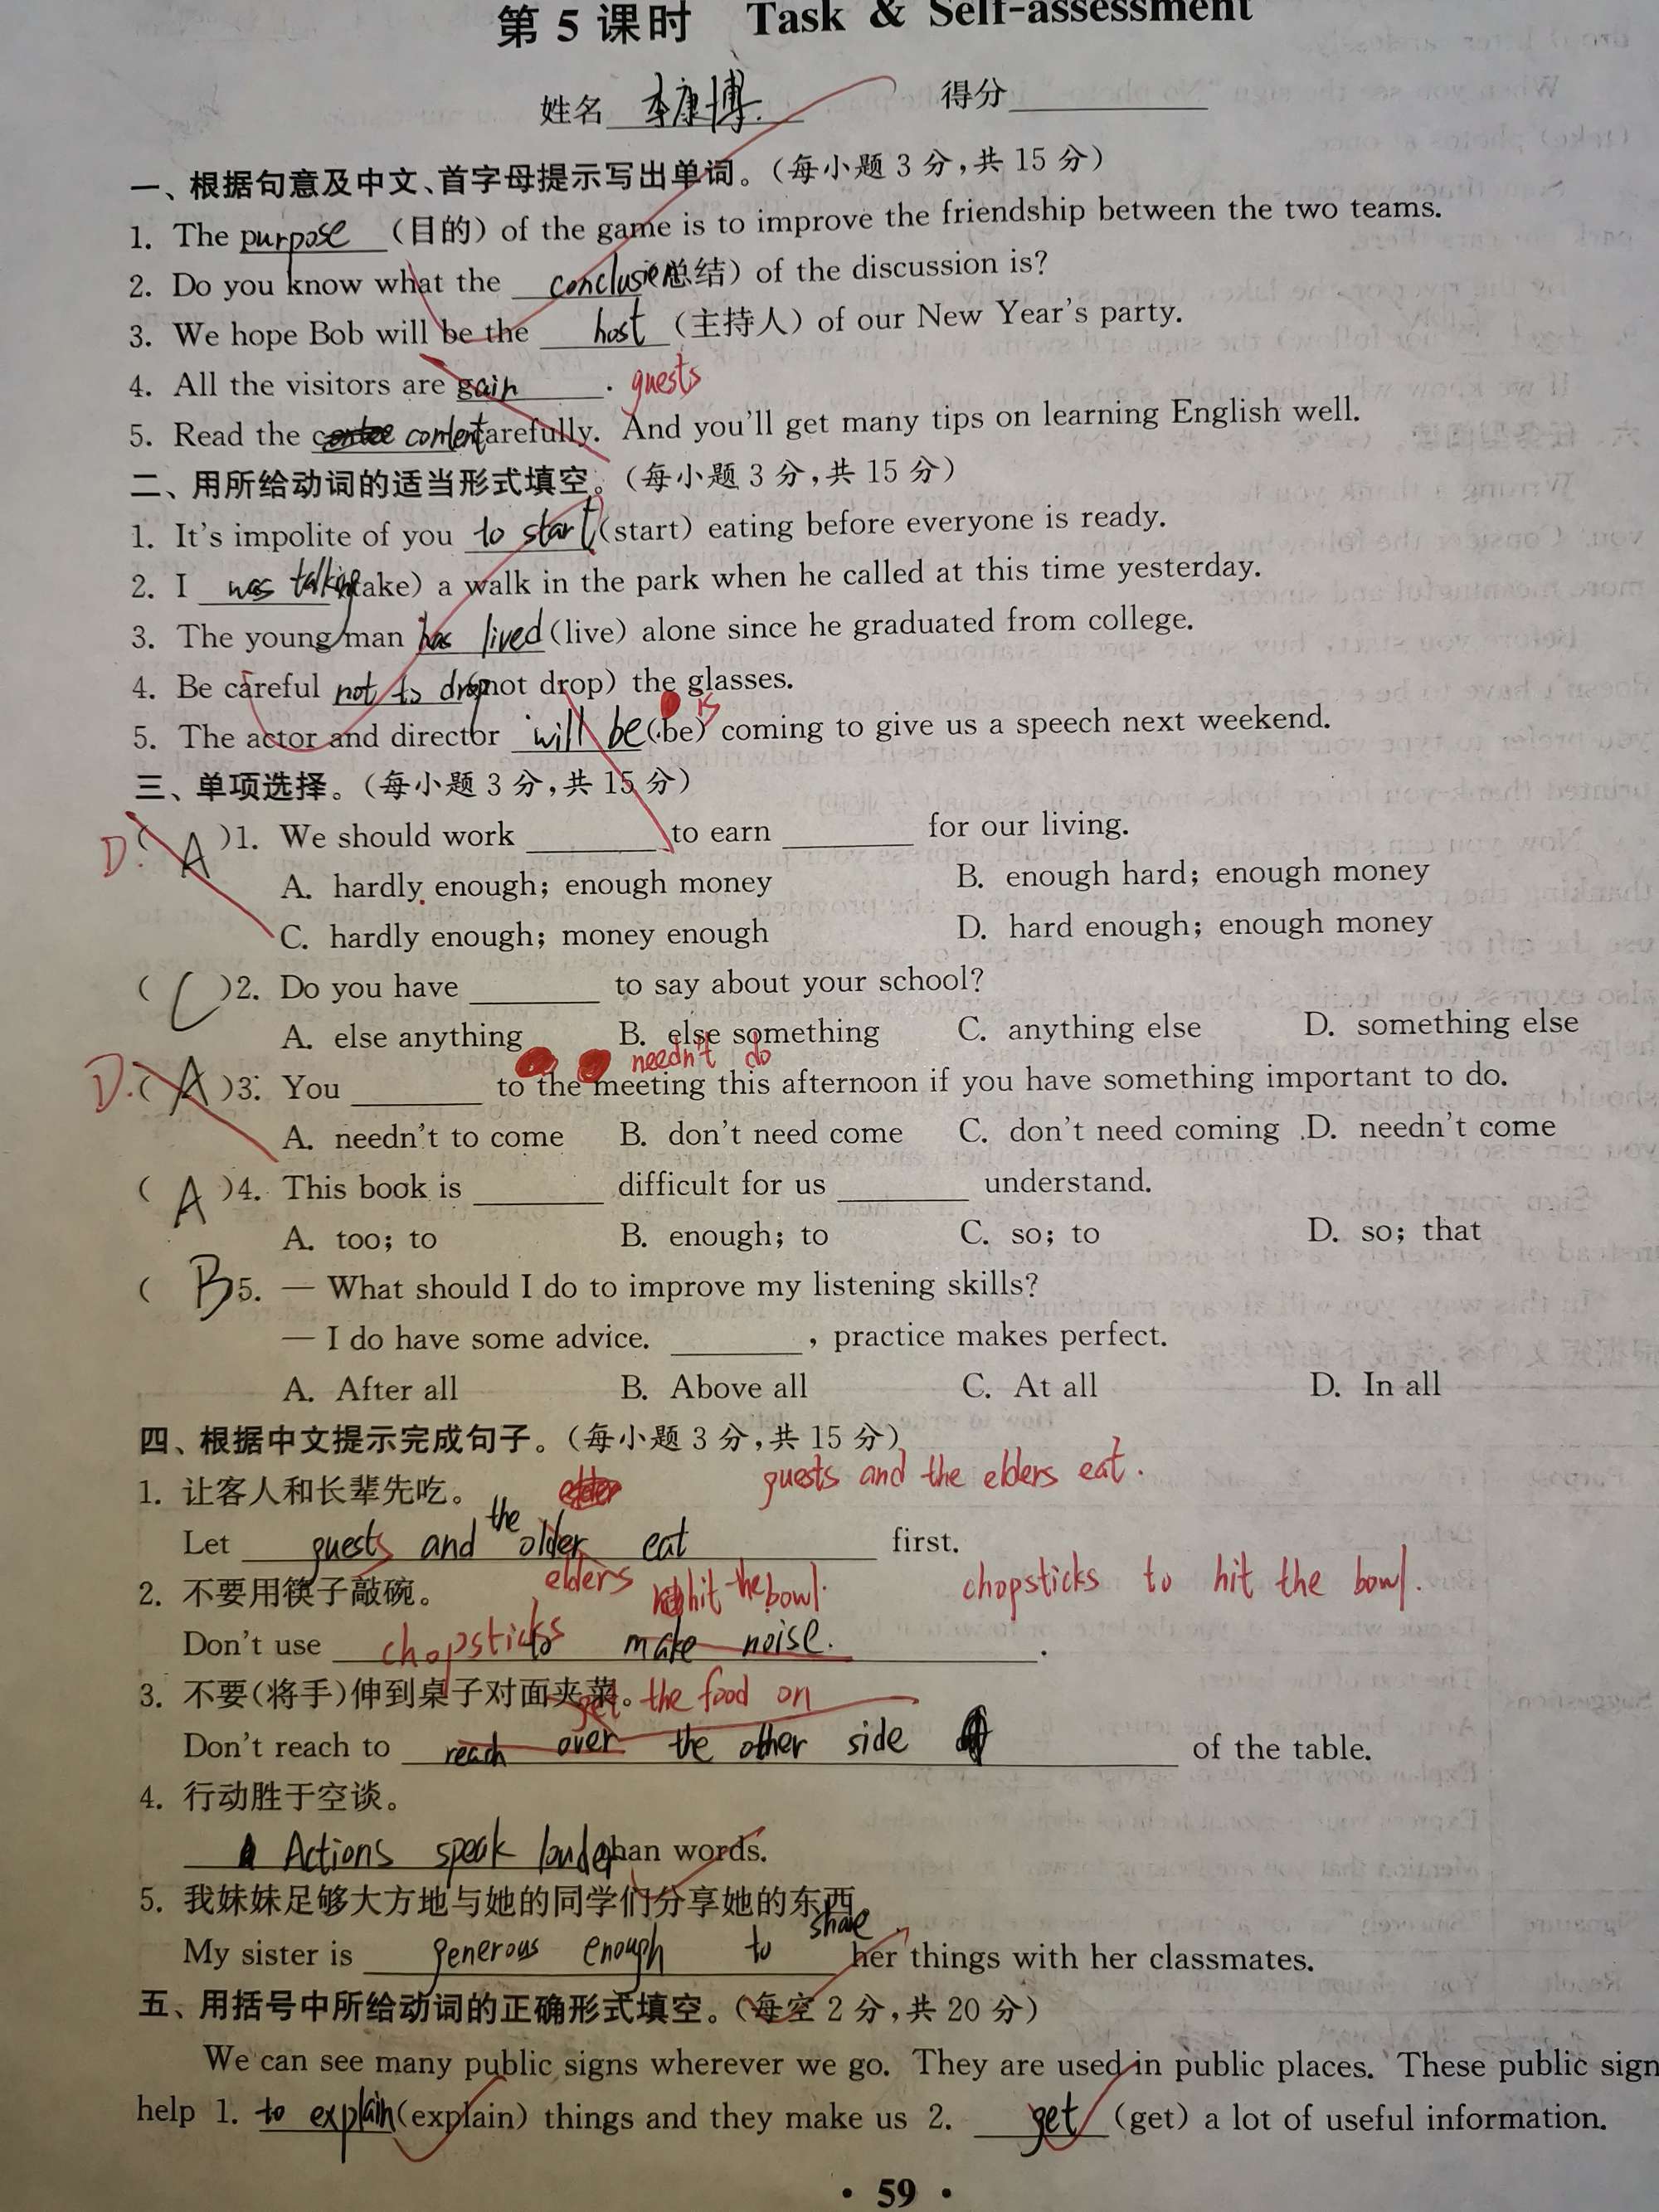 第 5 课时 Task & Self-assessment
姓名 李康博. 得分
一、根据句意及中文、首字母提示写出单词。(每小题 3 分,共 15 分)
1. The purpose (目的) of the game is to improve the friendship between the two teams.
2. Do you know what the conclusion(总结) of the discussion is?
3. We hope Bob will be the host (主持人) of our New Year's party.
4. All the visitors are gain . guests
5. Read the c content carefully. And you'll get many tips on learning English well.
二、用所给动词的适当形式填空。(每小题 3 分,共 15 分)
1. It's impolite of you to start (start) eating before everyone is ready.
2. I was talking (take) a walk in the park when he called at this time yesterday.
3. The young man has lived (live) alone since he graduated from college.
4. Be careful not to drop (not drop) the glasses.
is
5. The actor and director will be (be) coming to give us a speech next weekend.
三、单项选择。(每小题 3 分,共 15 分)
D. ( A )1. We should work to earn for our living.
A. hardly enough; enough money B. enough hard; enough money
C. hardly enough; money enough D. hard enough; enough money
( C )2. Do you have to say about your school?
A. else anything B. else something C. anything else D. something else
needn't do
D. ( A )3. You to the meeting this afternoon if you have something important to do.
A. needn't to come B. don't need come C. don't need coming D. needn't come
( A )4. This book is difficult for us understand.
A. too; to B. enough; to C. so; to D. so; that
( B 5. — What should I do to improve my listening skills?
— I do have some advice. , practice makes perfect.
A. After all B. Above all C. At all D. In all
四、根据中文提示完成句子。(每小题 3 分,共 15 分)
guests and the elders eat.
1. 让客人和长辈先吃。
Let guests and the older eat first.
elders hit the bowl. chopsticks to hit the bowl.
2. 不要用筷子敲碗。
Don't use chopsticks to make noise. .
3. 不要(将手)伸到桌子对面夹菜。 get the food on
Don't reach to reach over the other side of the table.
4. 行动胜于空谈。
Actions speak louder than words.
5. 我妹妹足够大方地与她的同学们分享她的东西。
My sister is generous enough to share her things with her classmates.
五、用括号中所给动词的正确形式填空。(每空 2 分,共 20 分)
We can see many public signs wherever we go. They are used in public places. These public sign
help 1. to explain (explain) things and they make us 2. get (get) a lot of useful information.
• 59 •